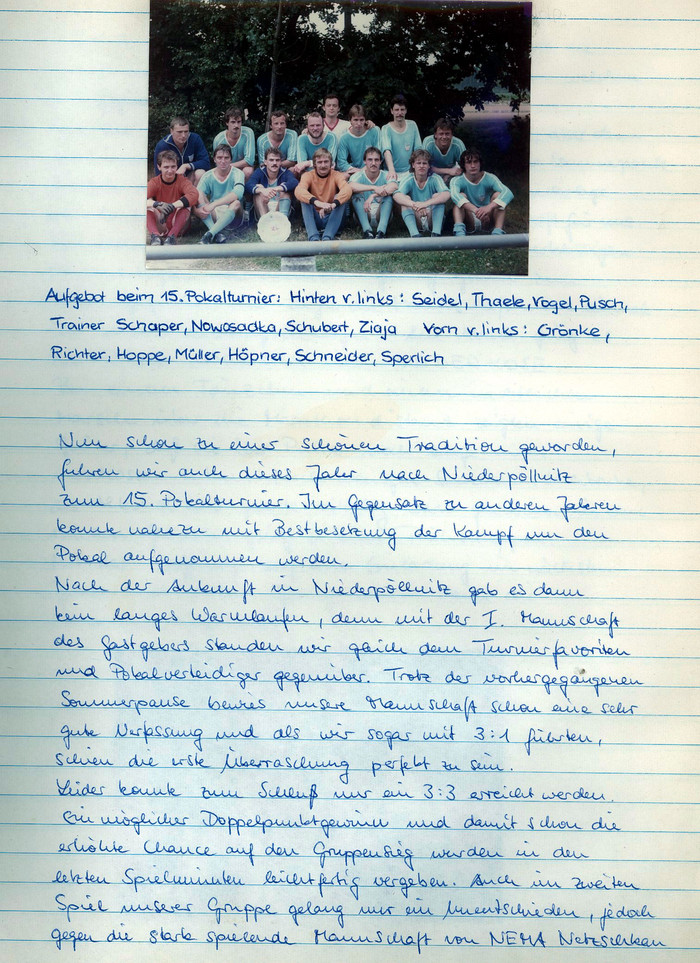 Aufgebot beim 15. Pokalturnier: Hinten v. links: Seidel, Thaele, Vogel, Pusch,
Trainer Schaper, Nowosadka, Schubert, Ziaja Vorn v. links: Grönke,
Richter, Hoppe, Müller, Höpner, Schneider, Sperlich
Nun schon zu einer schönen Tradition geworden,
fuhren wir auch dieses Jahr nach Niederpöllnitz
zum 15. Pokalturnier. Im Gegensatz zu anderen Jahren
konnte nahezu mit Bestbesetzung der Kampf um den
Pokal aufgenommen werden.
Nach der Ankunft in Niederpöllnitz gab es dann
kein langes Warmlaufen, denn mit der I. Mannschaft
des Gastgebers standen wir gleich dem Turnierfavoriten
und Pokalverteidiger gegenüber. Trotz der vorhergegangenen
Sommerpause bewies unsere Mannschaft schon eine sehr
gute Verfassung und als wir sogar mit 3:1 führten,
schien die erste Überraschung perfekt zu sein.
Leider konnte zum Schluß nur ein 3:3 erreicht werden.
Ein möglicher Doppelpunktgewinn und damit schon die
erhöhte Chance auf den Gruppensieg wurden in den
letzten Spielminuten leichtfertig vergeben. Auch im zweiten
Spiel unserer Gruppe gelang nur ein Unentschieden, jedoch
gegen die stark spielende Mannschaft von NEMA Netzschkau